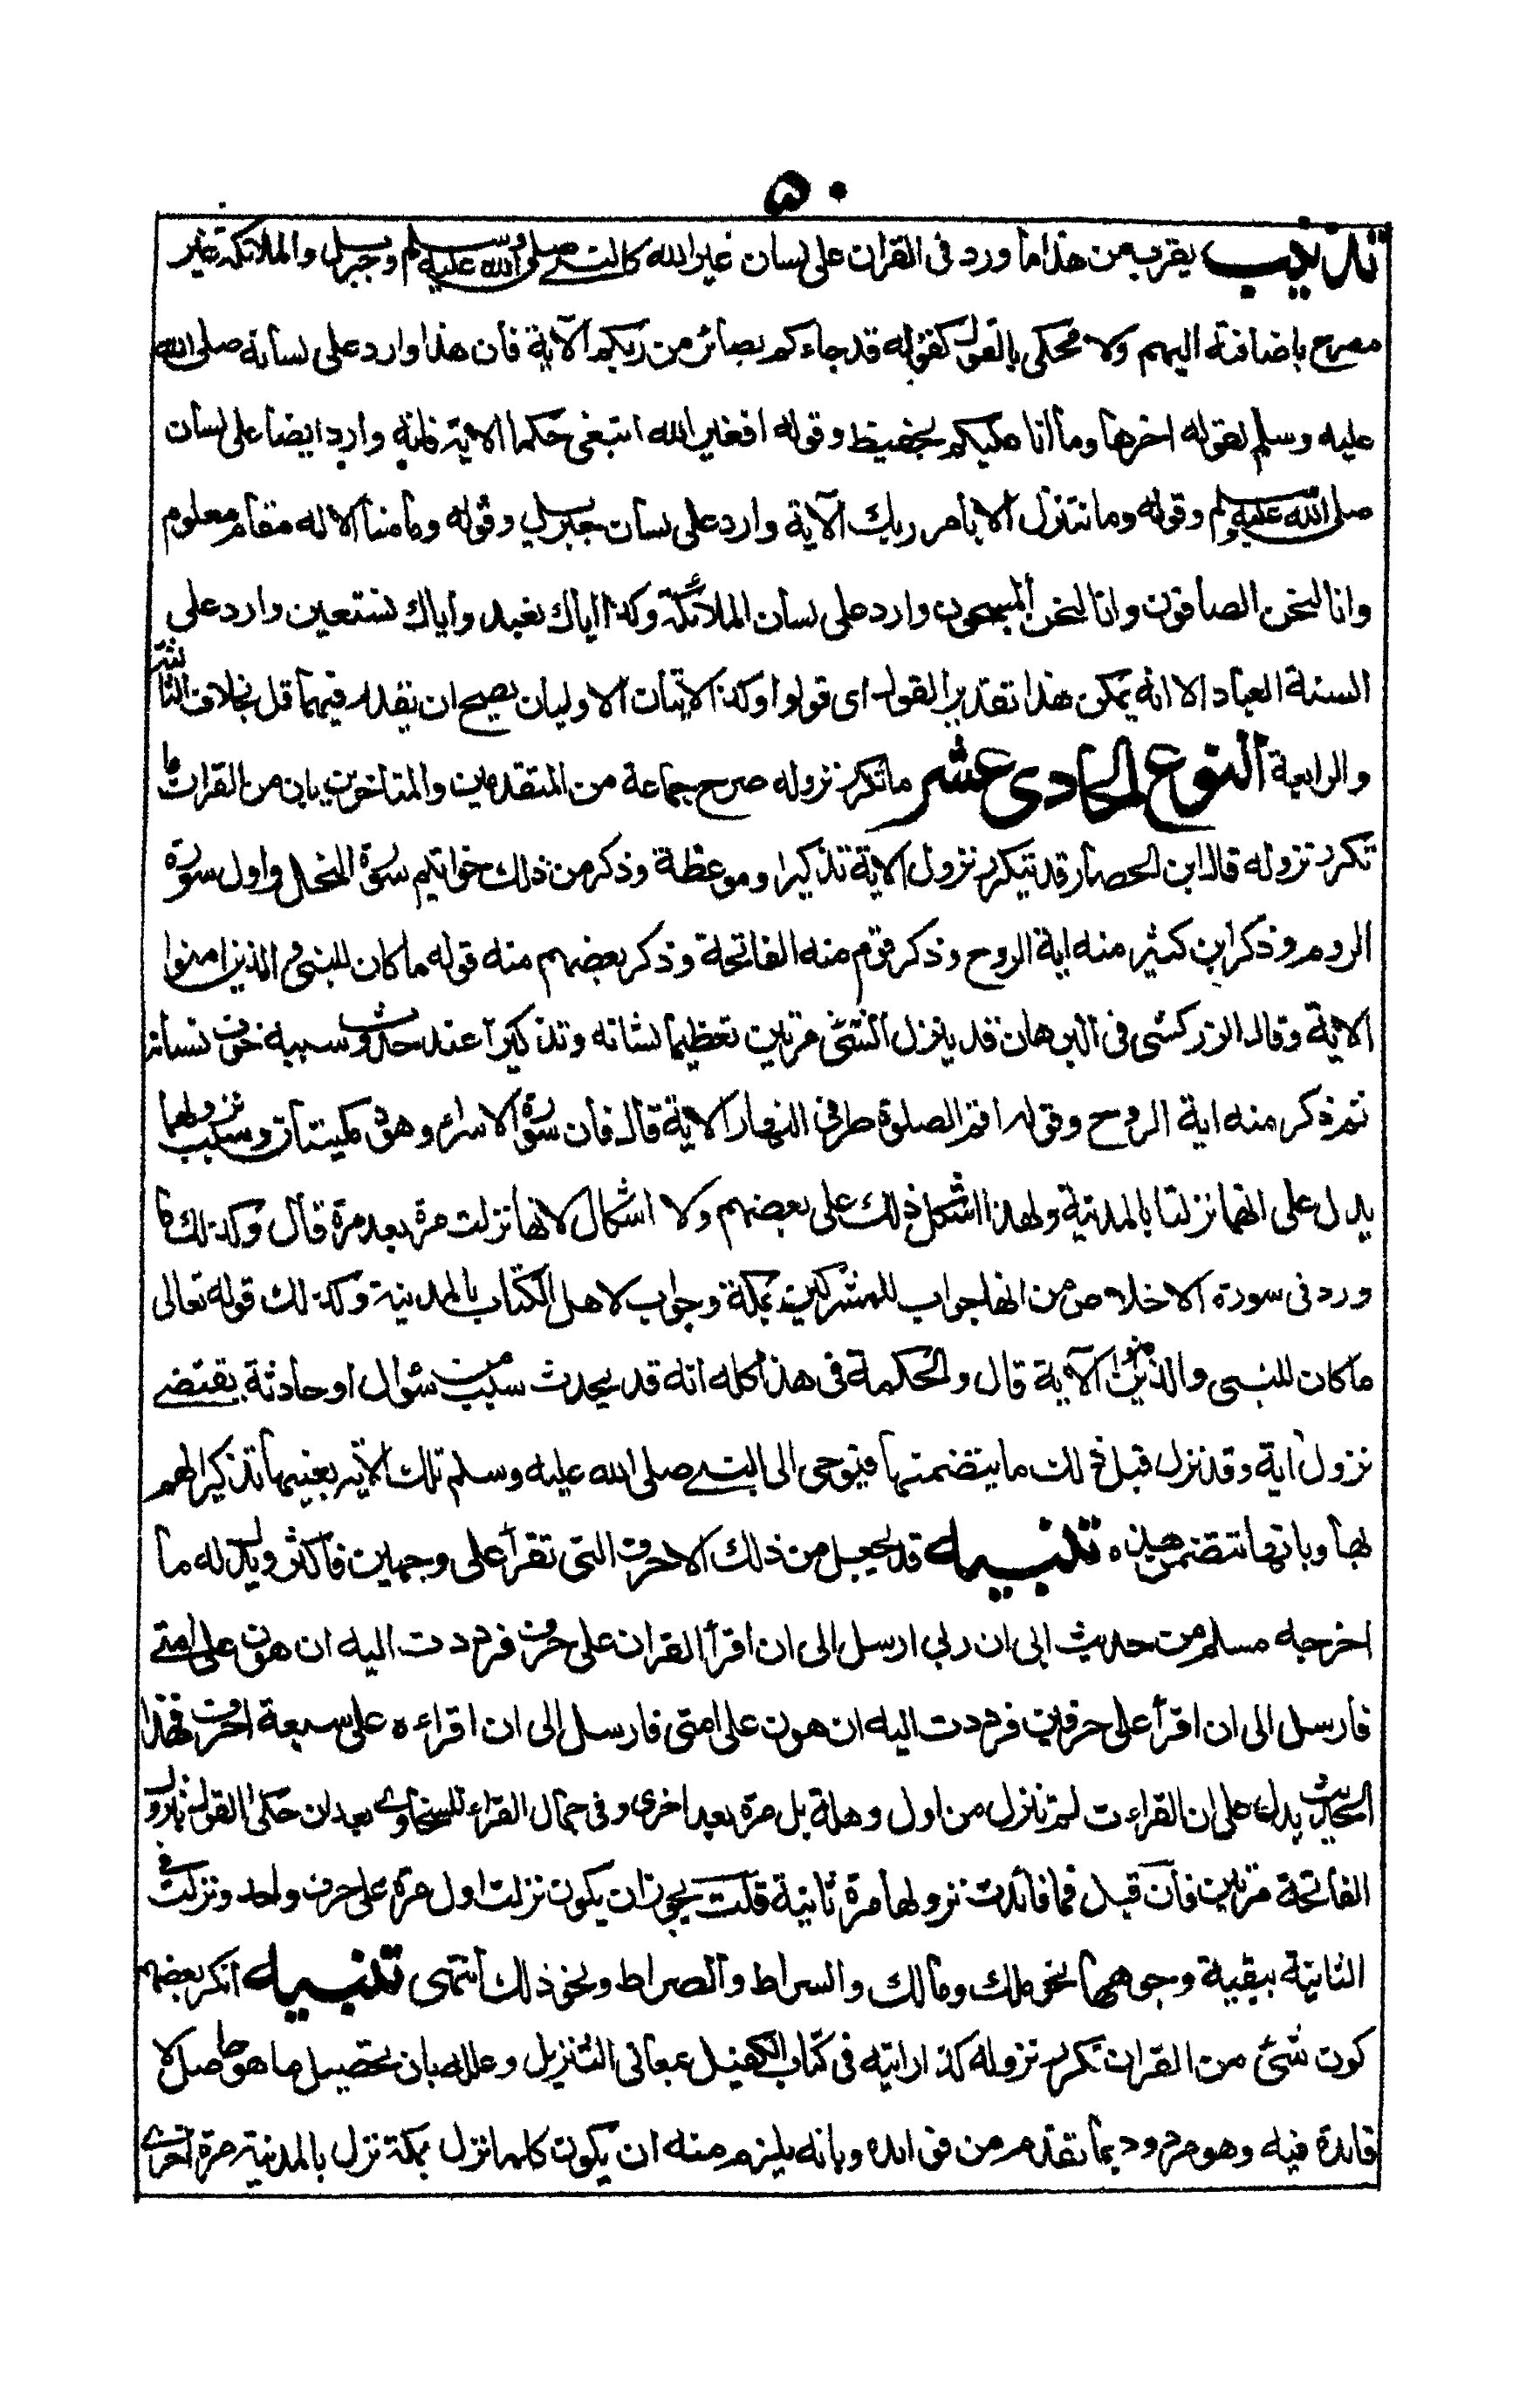 ۵۰
تذنيب يقرب من هذا ما ورد في القران على لسان غير الله كالنبي صلى الله عليه وسلم وجبريل والملائكة غير
مصرح باضافته اليهم ولا محكى بالقول كقوله قد جاءكم بصائر من ربكم الآية فان هذا وارد على لسانه صلى الله
عليه وسلم لقوله اخرها وما انا عليكم بحفيظ وقوله افغير الله ابتغى حكما الاية فانه وارد ايضا على لسان
صلى الله عليه وسلم وقوله وما نتنزل الا بامر ربك الآية وارد على لسان جبريل وقوله وما منا الا له مقام معلوم
وانا لنحن الصافون وانا لنحن المسبحون وارد على لسان الملائكة وكذا اياك نعبد واياك نستعين وارد على
السنة العباد الا انه يمكن هذا تقدير القول اى قولوا وكذا الايتان الاوليان يصح ان يقدر فيهما قل بخلاف الثالثة
والرابعة النوع الحادى عشر ما تكرر نزوله صرح جماعة من المتقدمين والمتاخرين بان من القران ما
تكرر نزوله قال ابن الحصار قد يتكرر نزول الاية تذكيرا وموعظة وذكر من ذلك خواتيم سورة النحل واول سورة
الروم وذكر ابن كثير منه اية الروح وذكر قوم منه الفاتحة وذكر بعضهم منه قوله ما كان للنبي والذين امنوا
الاية وقال الزركشى فى البرهان قد ينزل الشئ مرتين تعظيما لشانه وتذكيرا عند حدوث سببه خوف نسيانه
ثم ذكر منه اية الروح وقوله اقم الصلوة طرفي النهار الاية قال فان سورة الاسراء وهود مكيتان وسبب نزولهما
يدل على انهما نزلتا بالمدينة ولهذا اشكل ذلك على بعضهم ولا اشكال لانها نزلت مرة بعد مرة قال وكذلك ما
ورد فى سورة الاخلاص من انها جواب للمشركين بمكة وجواب لاهل الكتاب بالمدينة وكذلك قوله تعالى
ما كان للنبى والذين امنوا الآية قال والحكمة فى هذا كله انه قد يحدث سبب من سوال او حادثة يقتضى
نزول اية وقد نزل قبل ذلك ما يتضمنها فيوحى الى النبي صلى الله عليه وسلم تلك الاية بعينها تذكيرا لهم
بها وبانها تتضمن هذه تنبيه قد يجعل من ذلك الاحرف التى تقرأ على وجهين فاكثر ويدل له ما
اخرجه مسلم من حديث ابى ان ربى ارسل الى ان اقرأ القران على حرف فرددت اليه ان هون على امتى
فارسل الى ان اقرأ على حرفين فرددت اليه ان هون على امتى فارسل الى ان اقراءه على سبعة احرف فهذا
الحديث يدل على ان القراءت لم تنزل من اول وهلة بل مرة بعد اخرى وفى جمال القراء للسخاوى بعد ان حكى القول بنزول
الفاتحة مرتين فان قيل فما فائدت نزولها مرة ثانية قلت يجوز ان يكون نزلت اول مرة على حرف واحد ونزلت فى
الثانية ببقية وجوهها نحو ملك ومالك والسراط والصراط ونحو ذلك انتهى تنبيه انكر بعضهم
كون شئ من القران تكرر نزوله كذا رايته فى كتاب الكفيل بمعانى التنزيل وعلله بان تحصيل ما هو حاصل لا
فايدة فيه وهو مردود بما تقدم من فوايده وبانه يلزم منه ان يكون كلما نزل بمكة نزل بالمدينة مرة اخرى